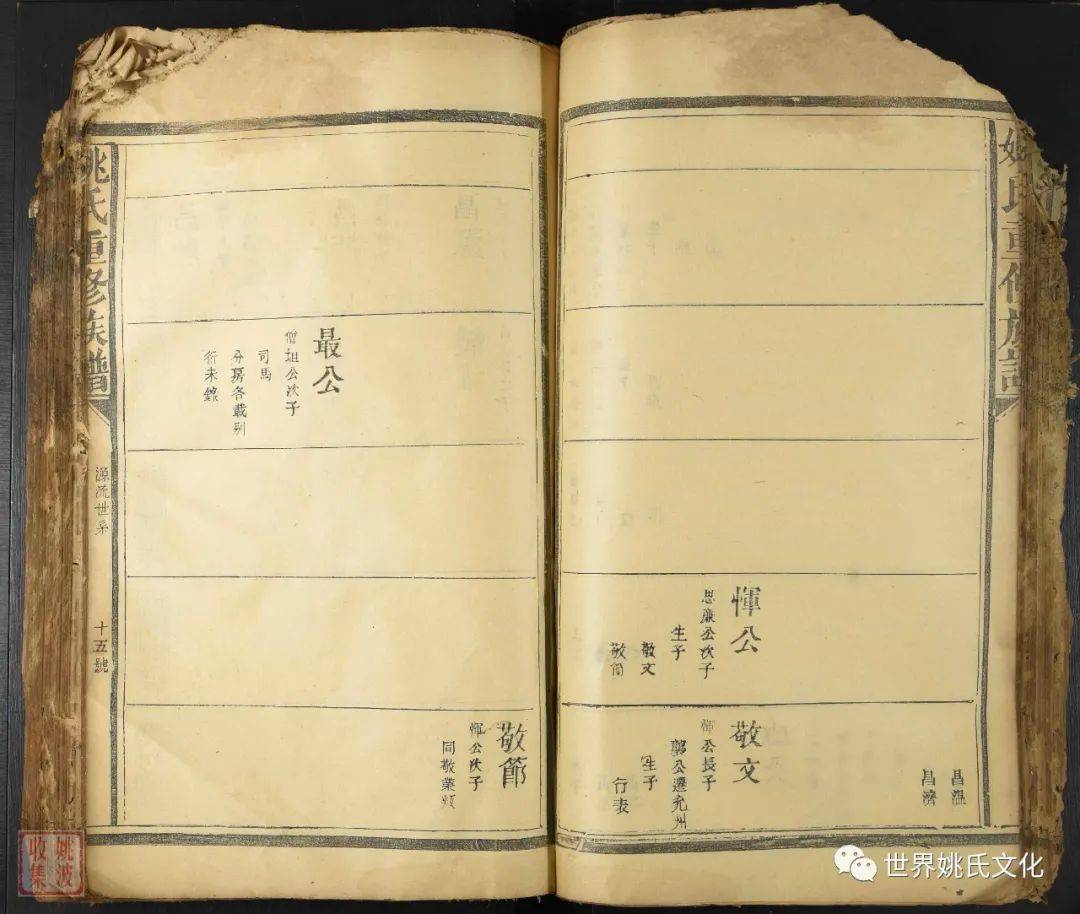 姚氏重修族譜
昌溫
昌濟
惲公
思廉公次子
生子
敬文
敬節
敬文
惲公長子
鄭公遷兗州
生子
行表
最公
僧坦公次子
司馬
分房各載別
衍未錄
敬節
惲公次子
同敬葉類
姚氏重修族譜
源流世系
十五號
姚波
收集
世界姚氏文化